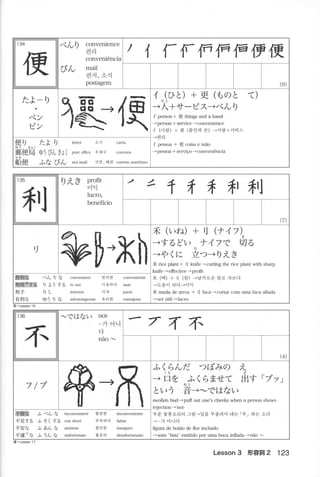 134
便
べんり convenience
편리
conveniência
びん mail
편지, 소식
postagem
(9)
たよ－り
・
ベン
ビン
亻(ひと) + 更 (ものと て)
→人+サービス→べんり
亻person + 更 things and a hand
→person + service → convenience
亻(사람) + 更 (물건과 손) →사람+서비스
→편리
亻pessoa + 更 coisa e mão
→pessoa + serviço→conveniência
便り たより letter 소식 carta
郵便局 ゆうびんきょく post office 우체국 correios
船便 ふなびん sea mail 선편, 배편 correio marítimo
135
利
りえき profit
이익
lucro,
benefício
(7)
リ
禾 (いね) + 刂 (ナイフ)
→するどい ナイフで 切る
→やくに 立つ→りえき
禾 rice plant + 刂 knife→cutting the rice plant with sharp
knife→effective→profit
→도움이 되다→이익
禾 muda de arroz + 刂 faca→cortar com uma faca afiada
→ser útil→lucro
便利な べんりな convenient 편리한 conveniente
利用する りようする to use 이용하다 usar
利子 りし interest 이자 juros
有利な ゆうりな advantageous 유리한 vantajoso
136
不
～ではない not
-가 아니
다
não ～
(4)
フ / ブ
ふくらんだ つぼみの え
→ 口を ふくらませて 出す「プッ」
という 音→～ではない
swollen bud→puff out one's cheeks when a person shows
rejection→not
→-가 아니다
figura de botão de flor inchado
→som "buu" emitido por uma boca inflada→não ～
不便な ふべんな inconvenient 불편한 inconveniente
不足する ふそくする run short 부족하다 faltar
不安な ふあんな anxious 불안한 inseguro
不運な ふうんな unfortunate 불운한 desafortunado
Lesson 3 形容詞2 123